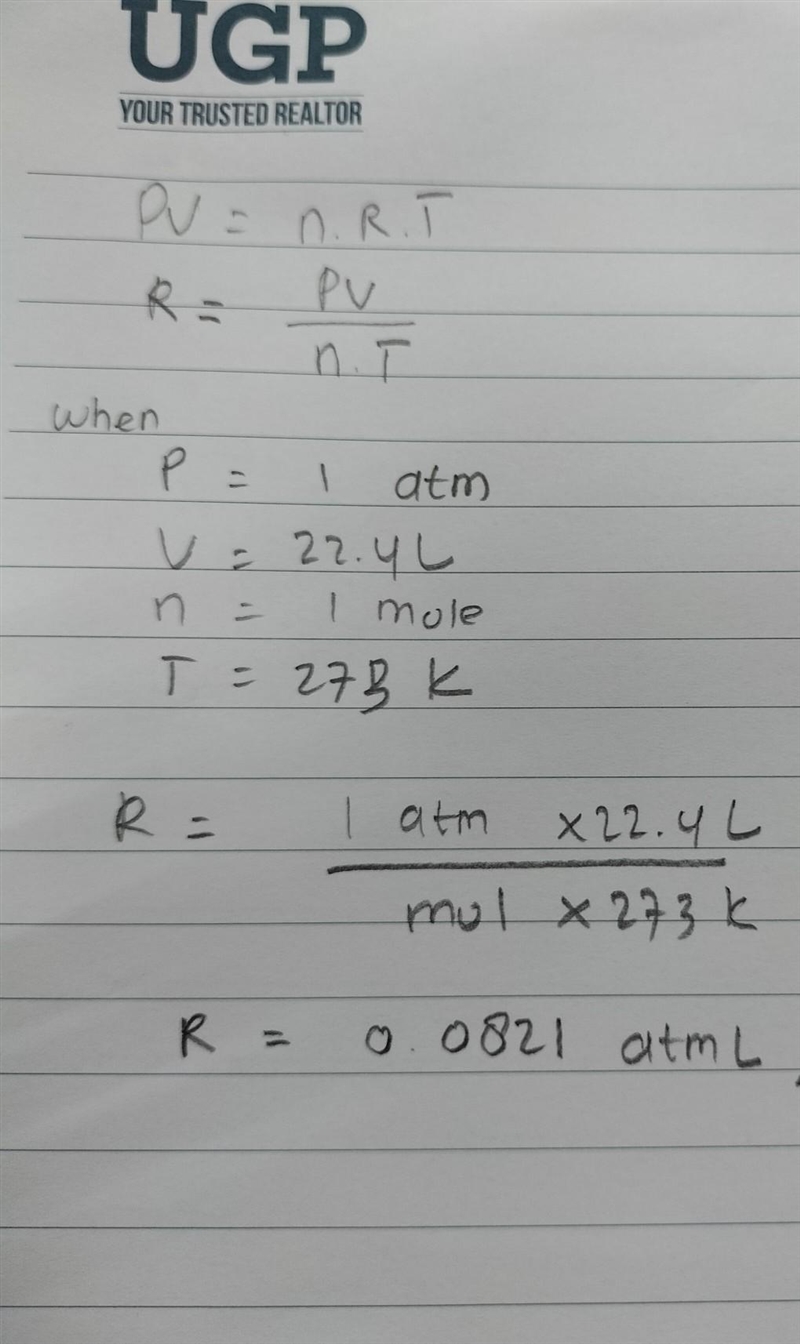 UGP
YOUR TRUSTED REALTOR
PV = n.R.T
R = PV
n.T
when
P = 1 atm
V = 22.4L
n = 1 mole
T = 273 K
R = 1 atm × 22.4 L
mol × 273 K
R = 0.0821 atm L